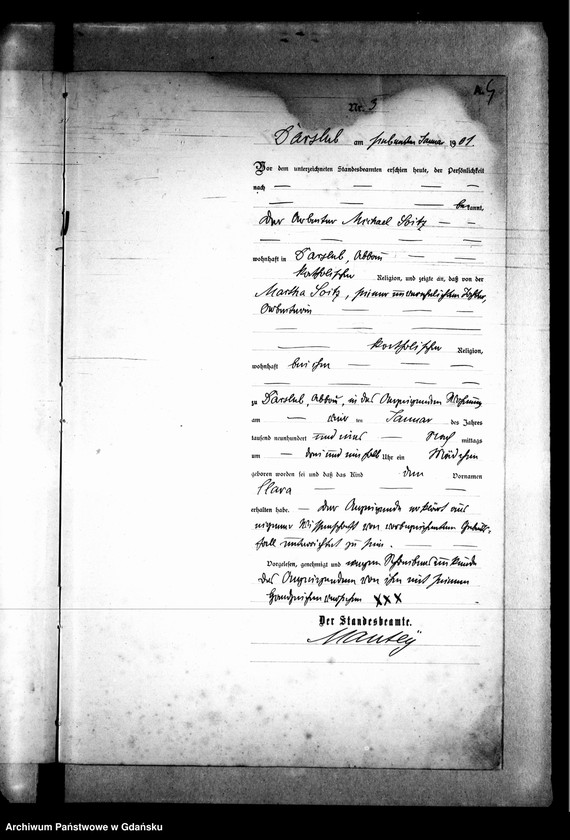 Nr. 5
Darslub am siebenten Januar 1901
Vor dem unterzeichneten Standesbeamten erschien heute, der Persönlichkeit
nach
bekannt,
der Arbeiter Michael
wohnhaft in Darslub, Abbau
katholischer Religion, und zeigte an, daß von der
Martha, seiner unverehelichten Tochter,
Arbeiterin
katholischer Religion,
wohnhaft bei ihm
zu Darslub, Abbau, in des Anzeigenden Wohnung
am ten Januar des Jahres
tausend neunhundert und eins Nach mittags
um drei und einhalb Uhr ein Mädchen
geboren worden sei und daß das Kind den Vornamen
Clara
erhalten habe. Der Anzeigende erklärt aus
eigener Wissenschaft von vorbezeichnetem Geburts-
fall unterrichtet zu sein.
Vorgelesen, genehmigt und wegen Schreibensunkunde
des Anzeigenden von ihm mit seinem
Handzeichen versehen XXX
Der Standesbeamte.
Archiwum Państwowe w Gdańsku